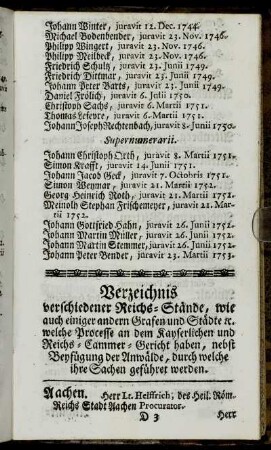 Johann Winter, juravit 12. Dec. 1744.
Michael Bodenbender, juravit 23. Nov. 1746.
Philipp Wingert, juravit 23. Nov. 1746.
Philipp Meilbeck, juravit 23. Nov. 1746.
Friedrich Schulz, juravit 23. Junii 1749.
Friedrich Dittmar, juravit 23. Junii 1749.
Johann Peter Bartes, juravit 23. Junii 1749.
Daniel Frölich, juravit 6. Julii 1750.
Christoph Sachs, juravit 6. Martii 1751.
Thomas Lefevre, juravit 6. Martii 1751.
Johann Joseph Rechtenbach, juravit 8. Junii 1750.
Supernumerarii.
Johann Christoph Orth, juravit 8. Martii 1751.
Simon Krafft, juravit 24. Junii 1751.
Johann Jacob Geck, juravit 7. Octobris 1751.
Simon Weymar, juravit 21. Martii 1752.
Georg Heinrich Roth, juravit 21. Martii 1752.
Meinolf Stephan Frischemeyer, juravit 21. Mar-
tii 1752.
Johann Gottfried Hahn, juravit 26. Junii 1752.
Johann Martin Miller, juravit 26. Junii 1752.
Johann Martin Stemmer, juravit 26. Junii 1752.
Johann Peter Bender, juravit 23. Martii 1753.
Verzeichnis
verschiedener Reichs-Stände, wie
auch einiger andern Grafen und Städte ꝛc.
welche Processe an dem Kayserlichen und
Reichs-Cammer-Gericht haben, nebst
Beyfügung der Anwälde, durch welche
ihre Sachen geführet werden.
Aachen. Herr Lt. Helffrich, des Heil. Röm.
Reichs Stadt Aachen Procurator.
D 3 Herr